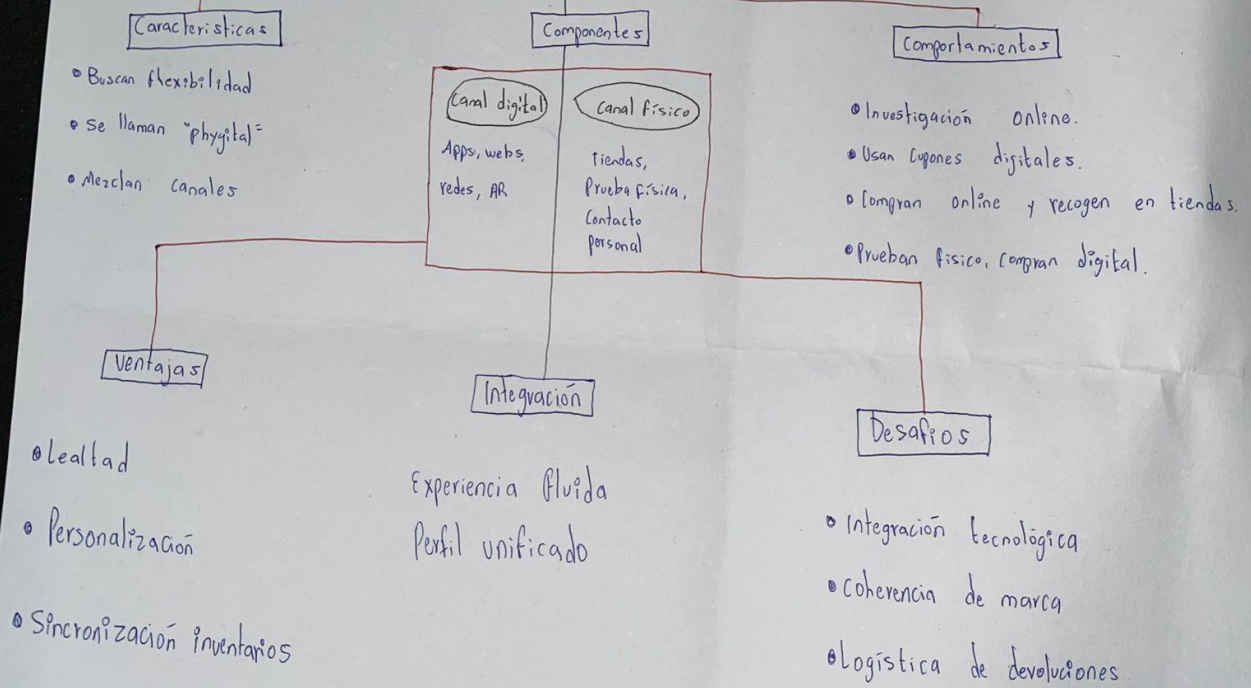 Caracteristicas
• Buscan flexibilidad
• Se llaman "phygital"
• Mezclan canales
Componentes
Canal digital
Apps, webs,
redes, AR
Canal físico
tiendas,
Prueba física,
Contacto
personal
Comportamientos
• Investigación online.
• Usan cupones digitales.
• Compran online y recogen en tiendas.
• Prueban fisico, compran digital.
Ventajas
• Lealtad
• Personalización
• Sincronización inventarios
Integración
Experiencia fluida
Perfil unificado
Desafios
• Integración tecnológica
• Coherencia de marca
• Logística de devoluciones